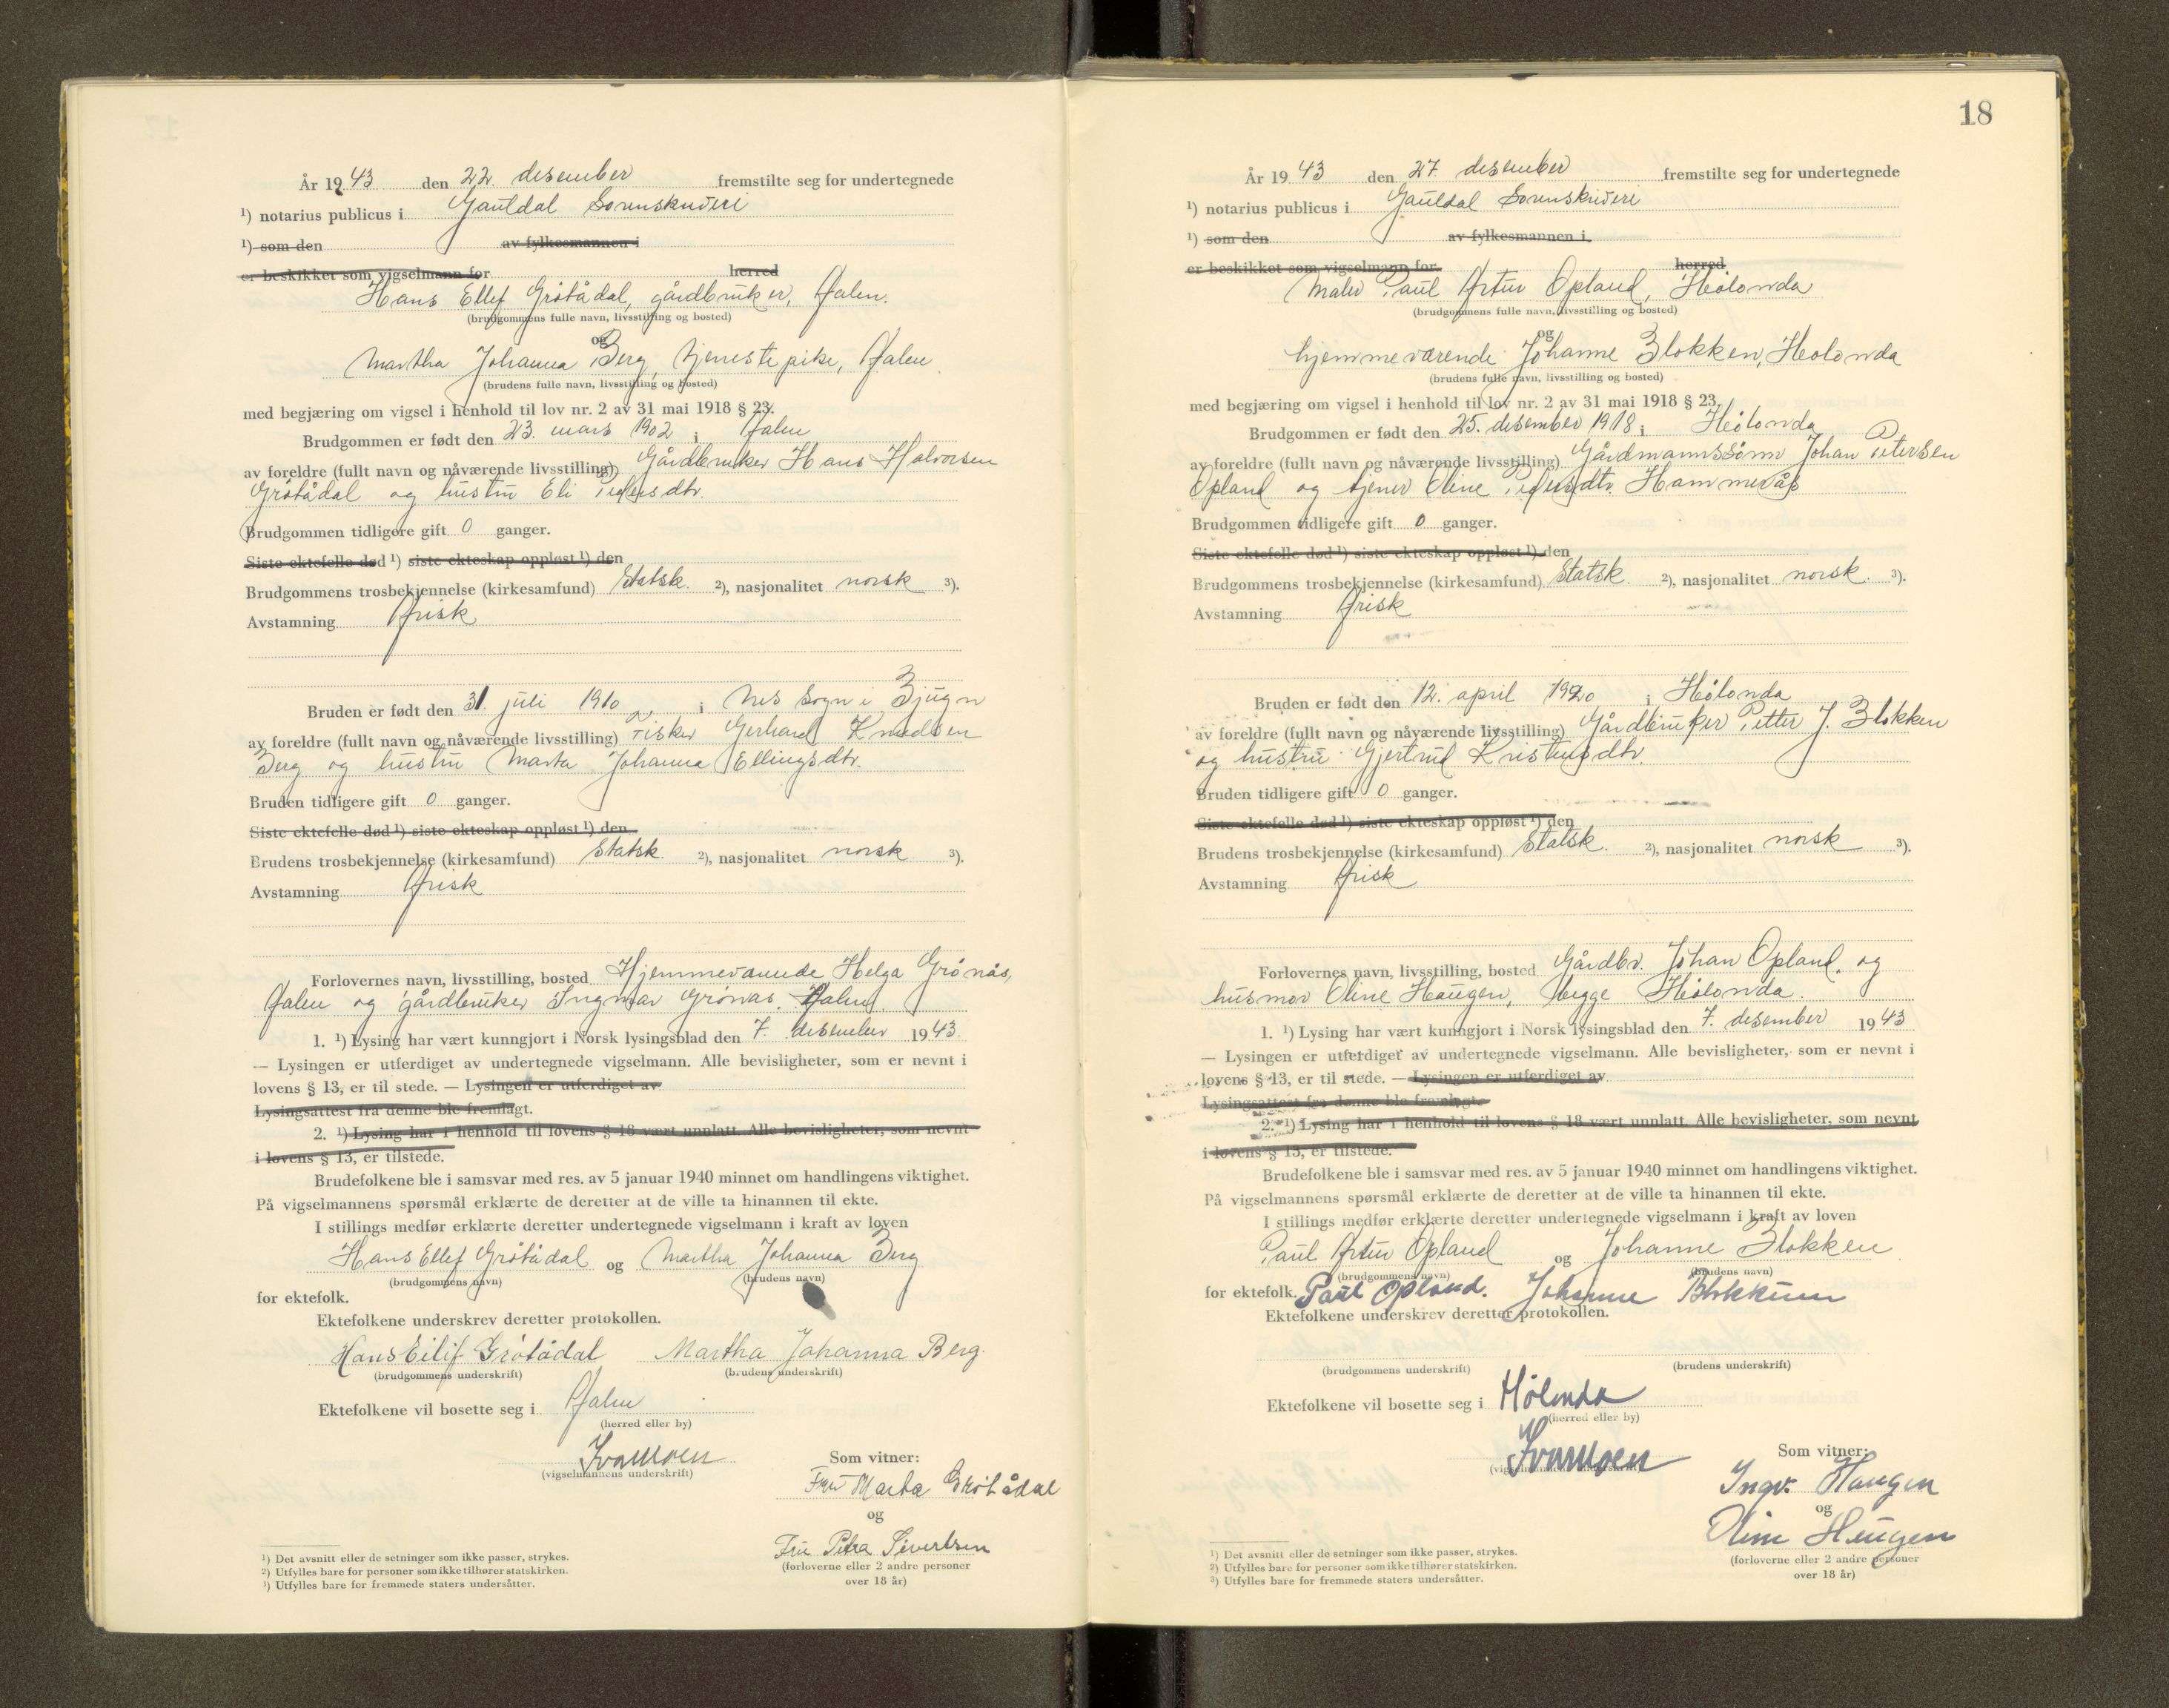 År 1943 den 22. desember fremstilte seg for undertegnede
¹) notarius publicus i Gauldal Sorenskriveri
¹) som den av fylkesmannen i
er beskikket som vigselmann for herred
Hans Ellef Grötådal, gårdbruker, Ålen.
(brudgommens fulle navn, livsstilling og bosted)
og
Martha Johanna Berg, tjenestepike, Ålen.
(brudens fulle navn, livsstilling og bosted)
med begjæring om vigsel i henhold til lov nr. 2 av 31 mai 1918 § 23.
Brudgommen er født den 23. mars 1902 i Ålen
av foreldre (fullt navn og nåværende livsstilling) Gårdbruker Hans Halvorsen
Grötådal og hustru Eli Pedersdtr.
Brudgommen tidligere gift 0 ganger.
Siste ektefelle død ¹) siste ekteskap oppløst ¹) den
Brudgommens trosbekjennelse (kirkesamfund) Statsk. ²), nasjonalitet norsk ³).
Avstamning Arisk
Bruden er født den 31. juli 1910 i Nes Sogn i Bjugn
av foreldre (fullt navn og nåværende livsstilling) Fisker Gerhard Knudsen
Berg og hustru Marta Johanna Ellingsdtr.
Bruden tidligere gift 0 ganger.
Siste ektefelle død ¹) siste ekteskap oppløst ¹) den
Brudens trosbekjennelse (kirkesamfund) Statsk. ²), nasjonalitet norsk ³).
Avstamning Arisk
Forlovernes navn, livsstilling, bosted Hjemmeværende Helga Grönås,
Ålen og gårdbruker Ingmar Grönås. Ålen.
1. ¹) Lysing har vært kunngjort i Norsk lysingsblad den 7. desember 1943.
— Lysingen er utferdiget av undertegnede vigselmann. Alle bevisligheter, som er nevnt i
lovens § 13, er til stede. — Lysingen er utferdiget av
Lysingsattest fra denne ble fremlagt.
2. ¹) Lysing har i henhold til lovens § 18 vært unnlatt. Alle bevisligheter, som nevnt
i lovens § 13, er tilstede.
Brudefolkene ble i samsvar med res. av 5 januar 1940 minnet om handlingens viktighet.
På vigselmannens spørsmål erklærte de deretter at de ville ta hinannen til ekte.
I stillings medfør erklærte deretter undertegnede vigselmann i kraft av loven
Hans Ellef Grötådal og Martha Johanna Berg
(brudgommens navn) (brudens navn)
for ektefolk.
Ektefolkene underskrev deretter protokollen.
Hans Eilif Grötådal Martha Johanna Berg.
(brudgommens underskrift) (brudens underskrift)
Ektefolkene vil bosette seg i Ålen
(herred eller by)
(vigselmannens underskrift)
Som vitner:
Fru Marta Grötådal
og
Fru Petra Sivertsen
(forloverne eller 2 andre personer
over 18 år)
¹) Det avsnitt eller de setninger som ikke passer, strykes.
²) Utfylles bare for personer som ikke tilhører statskirken.
³) Utfylles bare for fremmede staters undersåtter.
18
År 1943 den 27 desember fremstilte seg for undertegnede
¹) notarius publicus i Gauldal Sorenskriveri
¹) som den av fylkesmannen i
er beskikket som vigselmann for herred
Maler Paul Artur Opland, Hölonda
(brudgommens fulle navn, livsstilling og bosted)
og
hjemmeværende Johanne Blokken, Hölonda
(brudens fulle navn, livsstilling og bosted)
med begjæring om vigsel i henhold til lov nr. 2 av 31 mai 1918 § 23.
Brudgommen er født den 25. desember 1918 i Hölonda
av foreldre (fullt navn og nåværende livsstilling) Gårdmannssönn Johan Petersen
Opland og tjener Oline Pedersdtr. Hammerås
Brudgommen tidligere gift 0 ganger.
Siste ektefelle død ¹) siste ekteskap oppløst ¹) den
Brudgommens trosbekjennelse (kirkesamfund) Statsk. ²), nasjonalitet norsk. ³).
Avstamning Arisk
Bruden er født den 12. april 1920 i Hölonda
av foreldre (fullt navn og nåværende livsstilling) Gårdbruker Petter J. Blokken
og hustru Gjertrud Kristensdtr.
Bruden tidligere gift 0 ganger.
Siste ektefelle død ¹) siste ekteskap oppløst ¹) den
Brudens trosbekjennelse (kirkesamfund) Statsk. ²), nasjonalitet norsk ³).
Avstamning Arisk
Forlovernes navn, livsstilling, bosted Gårdbr. Johan Opland, og
husmor Oline Haugen, begge Hölonda.
1. ¹) Lysing har vært kunngjort i Norsk lysingsblad den 7. desember 1943
— Lysingen er utferdiget av undertegnede vigselmann. Alle bevisligheter, som er nevnt i
lovens § 13, er til stede. — Lysingen er utferdiget av
Lysingsattest fra denne ble fremlagt.
2. ¹) Lysing har i henhold til lovens § 18 vært unnlatt. Alle bevisligheter, som nevnt
i lovens § 13, er tilstede.
Brudefolkene ble i samsvar med res. av 5 januar 1940 minnet om handlingens viktighet.
På vigselmannens spørsmål erklærte de deretter at de ville ta hinannen til ekte.
I stillings medfør erklærte deretter undertegnede vigselmann i kraft av loven
Paul Artur Opland og Johanne Blokken
(brudgommens navn) (brudens navn)
for ektefolk. Paul Opland. Johanne Blokkum
Ektefolkene underskrev deretter protokollen.
(brudgommens underskrift) (brudens underskrift)
Ektefolkene vil bosette seg i Hölonda
(herred eller by)
(vigselmannens underskrift)
Som vitner:
Ingv. Haugen
og
Oline Haugen
(forloverne eller 2 andre personer
over 18 år)
¹) Det avsnitt eller de setninger som ikke passer, strykes.
²) Utfylles bare for personer som ikke tilhører statskirken.
³) Utfylles bare for fremmede staters undersåtter.